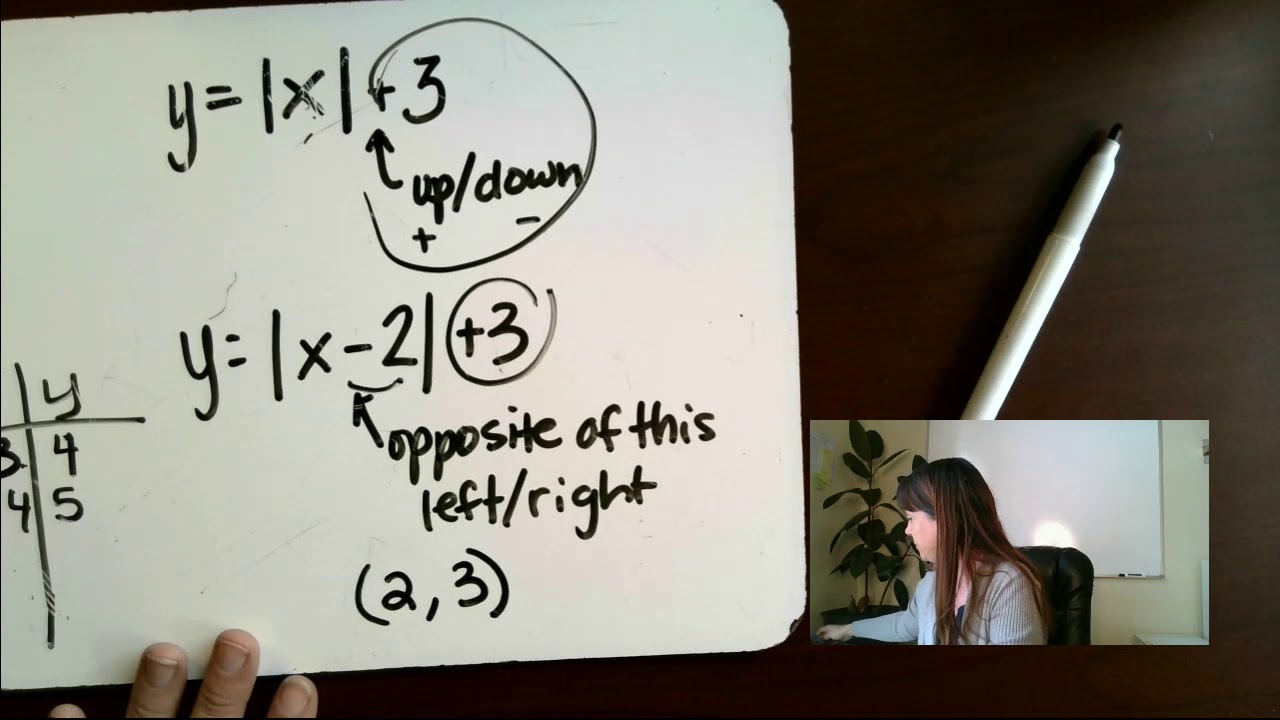 y = |x| + 3
up/down
+ -
y = |x - 2| + 3
opposite of this
left/right
(2, 3)
y
3 4
4 5